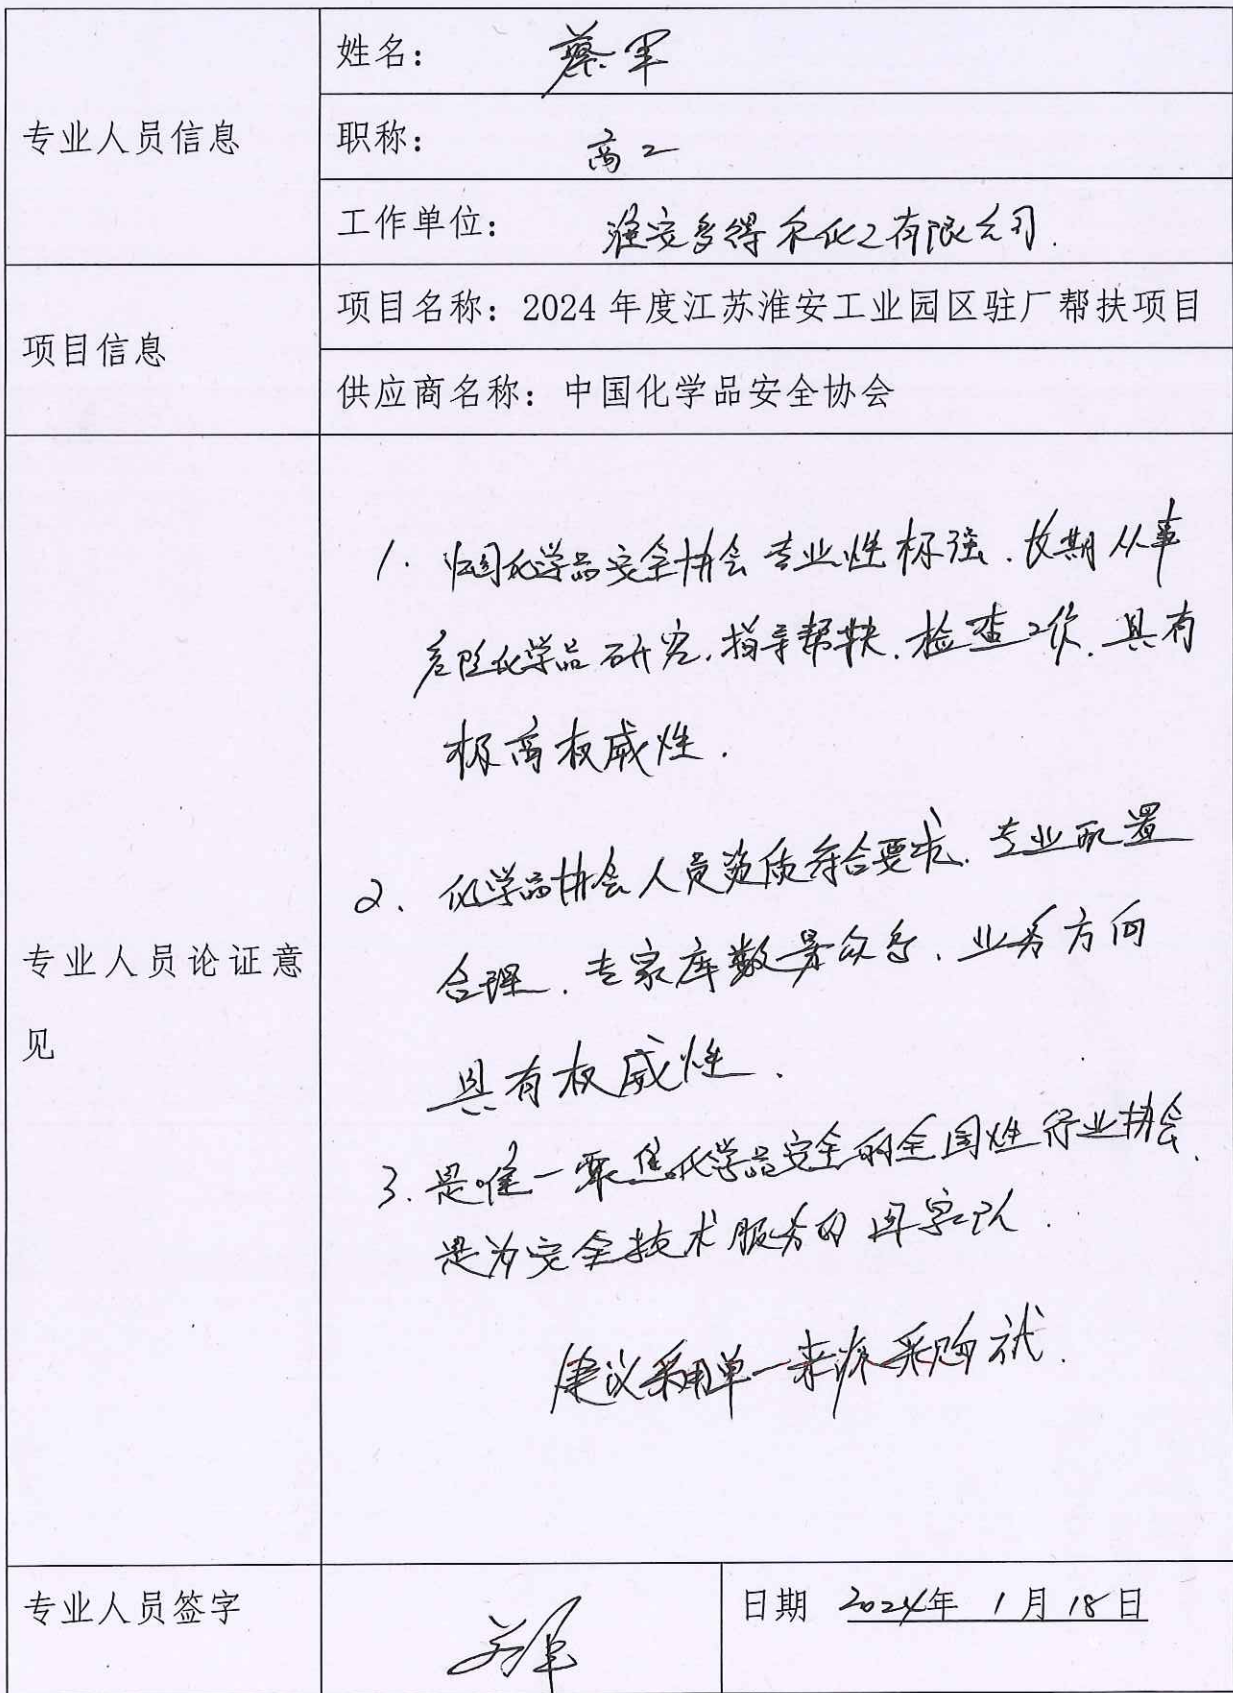 姓名： 蔡军
专业人员信息
职称： 高工
工作单位： 淮安多得尔化工有限公司.
项目名称：2024 年度江苏淮安工业园区驻厂帮扶项目
项目信息
供应商名称：中国化学品安全协会
1. 中国化学品安全协会专业性极强.长期从事
危险化学品研究.指导帮扶.检查工作.具有
极高权威性.
2、化学品协会人员资质符合要求.专业配置
合理.专家库数量众多、业务方向
具有权威性.
专业人员论证意
见
3.是唯一聚焦化学品安全的全国性行业协会.
是为安全技术服务的国家队.
建议采用单一来源采购方式.
专业人员签字
日期 2024年 1月 18日